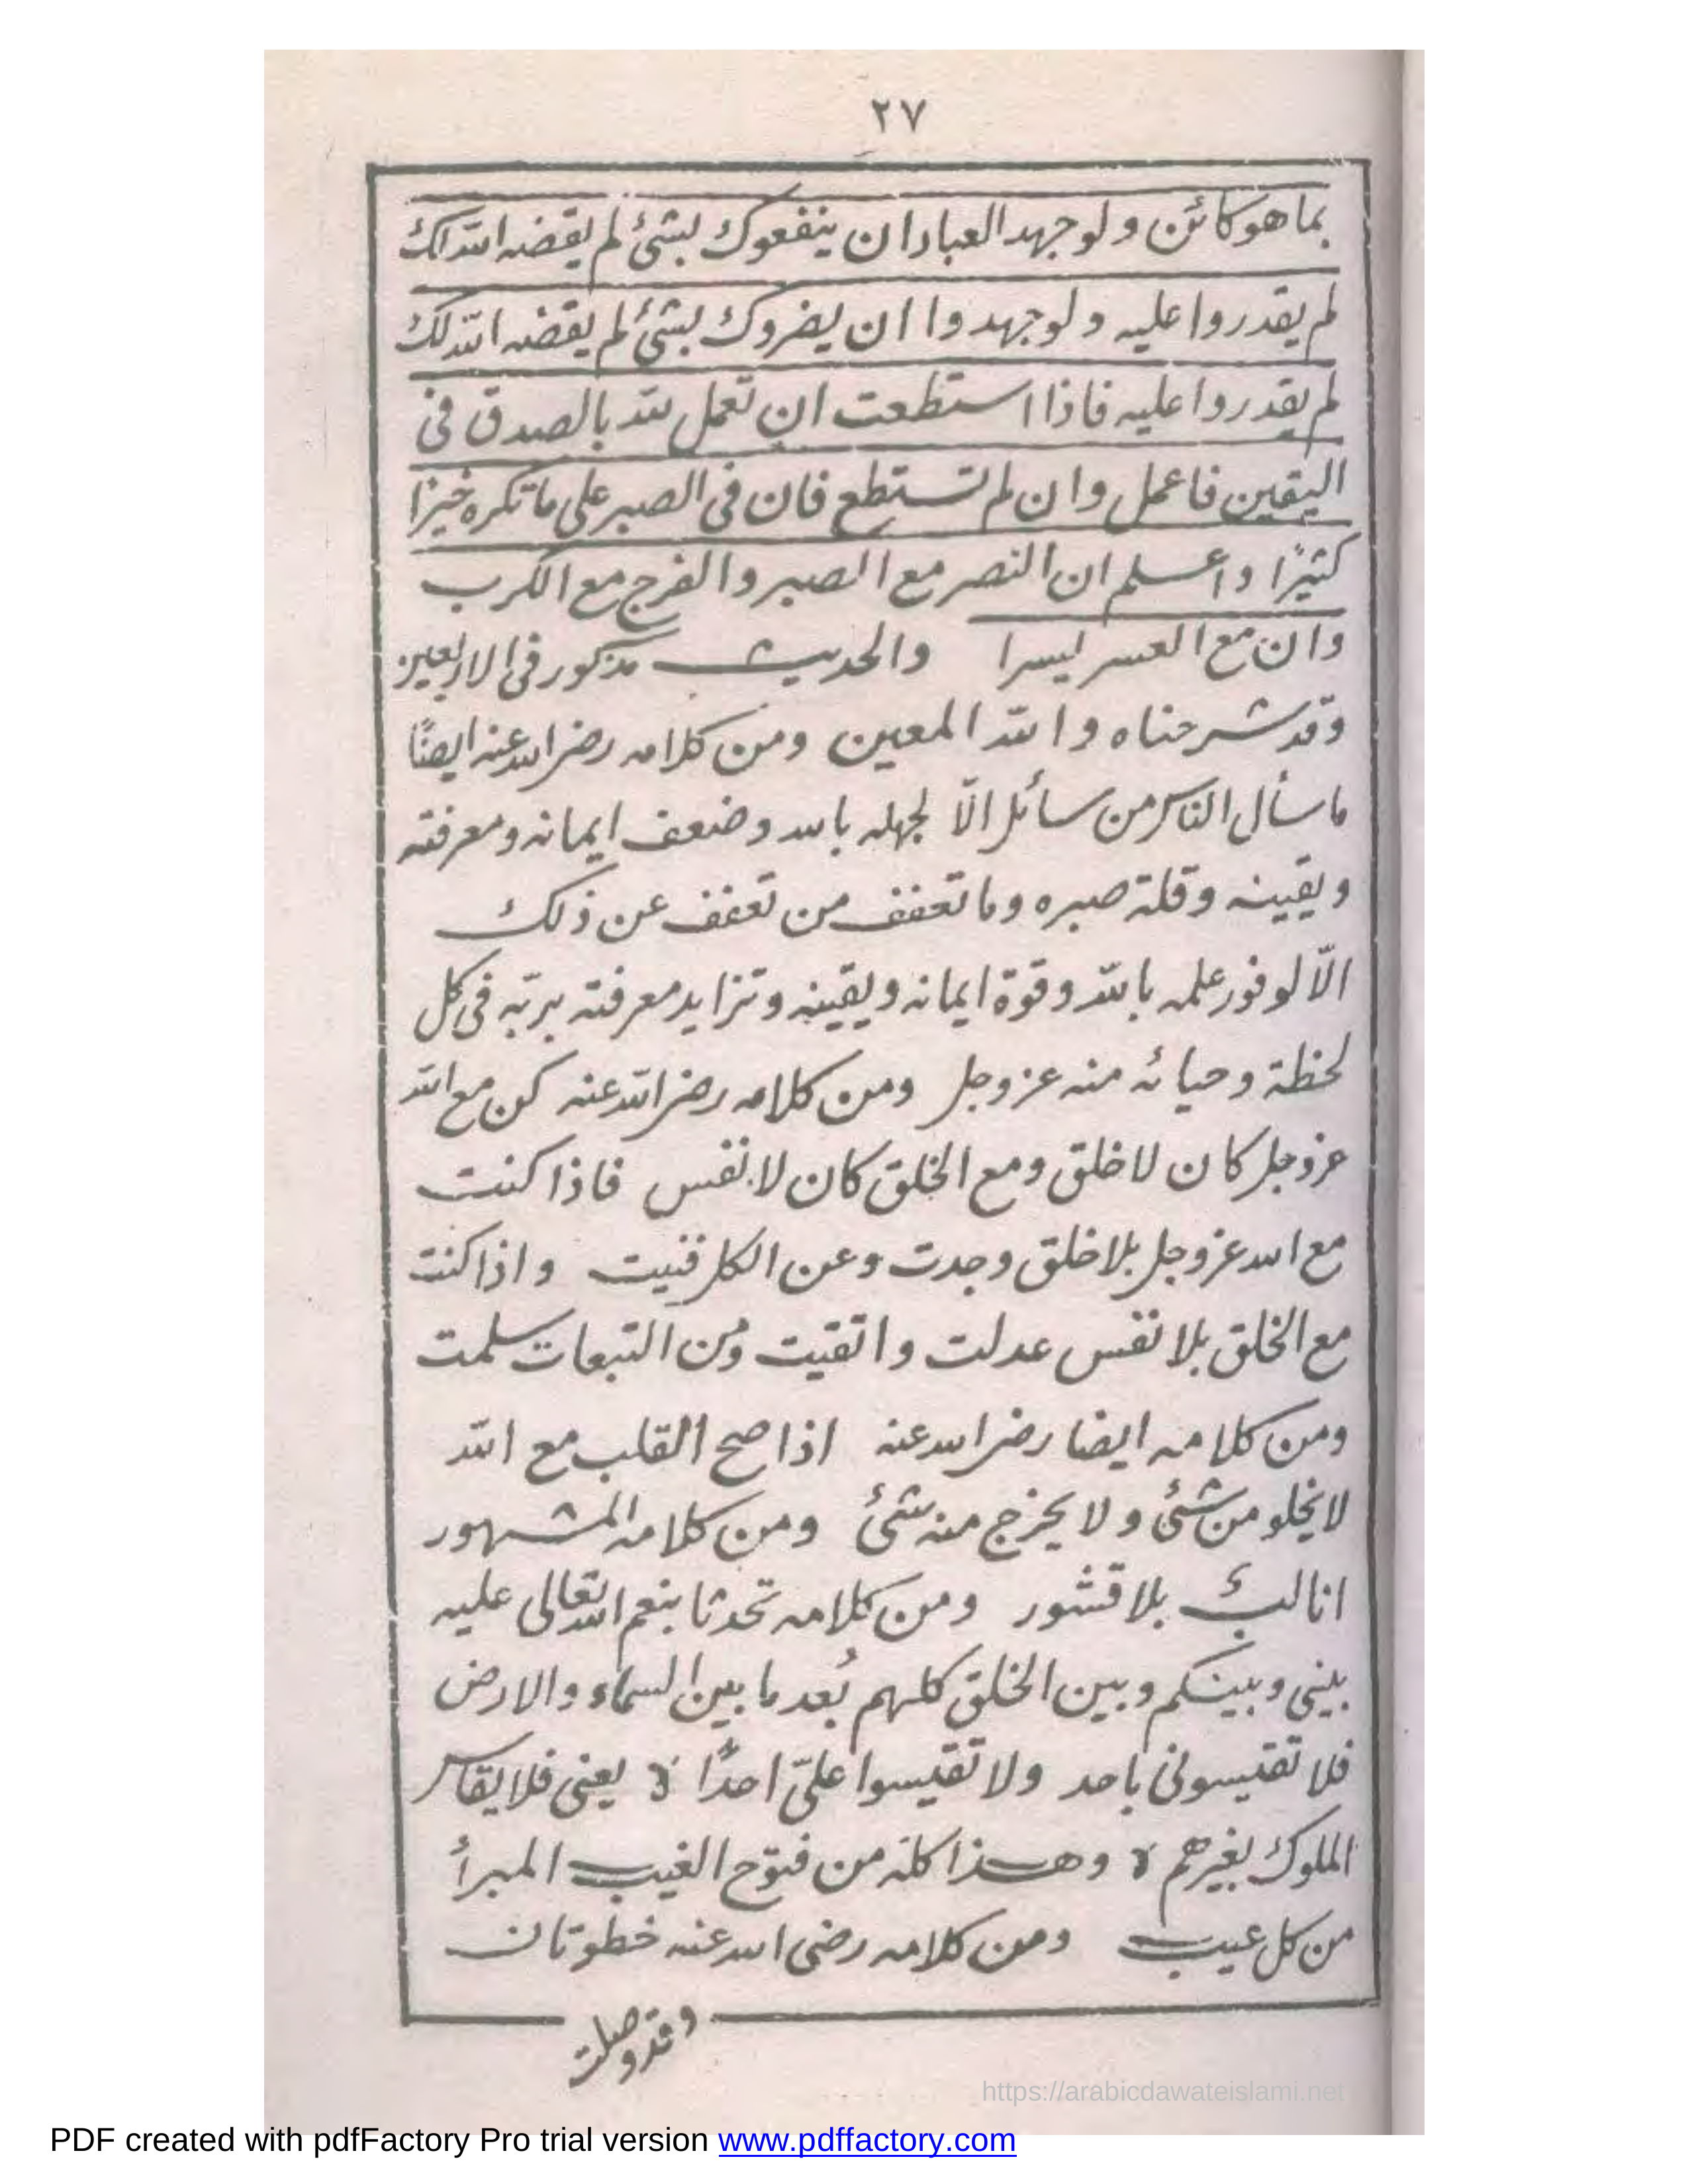 ٢٧
بما هو كائن ولو جهد العباد ان ينفعوك بشئ لم يقضه الله لك
لم يقدروا عليه ولو جهدوا ان يضروك بشئ لم يقضه الله لك
لم يقدروا عليه فاذا استطعت ان تعمل لله بالصدق فى
اليقين فاعمل وان لم تستطع فان فى الصبر على ما تكره خيرًا
كثيرًا واعلم ان النصر مع الصبر والفرج مع الكرب
وان مع العسر يسرا والحديث مذكور فى الاربعين
وقد شرحناه والله المعين ومن كلامه رضى الله عنه ايضًا
ما سأل الناس من سائل الّا لجهله بالله وضعف ايمانه ومعرفته
ويقينه وقلة صبره وما تعفف من تعفف عن ذلك
الّا لوفور علمه بالله وقوة ايمانه ويقينه وتزايد معرفته بربّه فى كل
لحظة وحيائه منه عز وجل ومن كلامه رضى الله عنه كن مع الله
عز وجل كان لا خلق ومع الخلق كان لا نفس فاذا كنت
مع الله عز وجل بلا خلق وجدت وعن الكل فنيت واذا كنت
مع الخلق بلا نفس عدلت واتقيت ومن التبعات سلمت
ومن كلامه ايضا رضى الله عنه اذا صح القلب مع الله
لا يخلو من شئ ولا يخرج منه شئ ومن كلامه المشهور
انا لبّ بلا قشور ومن كلامه تحدثا بنعم الله تعالى عليه
بينى وبينكم وبين الخلق كلهم بُعد ما بين السماء والارض
فلا تقيسونى باحد ولا تقيسوا علىّ احدًا لا يعنى فلا يقاس
الملوك بغيرهم لا وهذا كله من فتوح الغيب المبرأ
من كل عيب ومن كلامه رضى الله عنه خطوتان
وقد وصلت
https://arabicdawateislami.net
PDF created with pdfFactory Pro trial version www.pdffactory.com